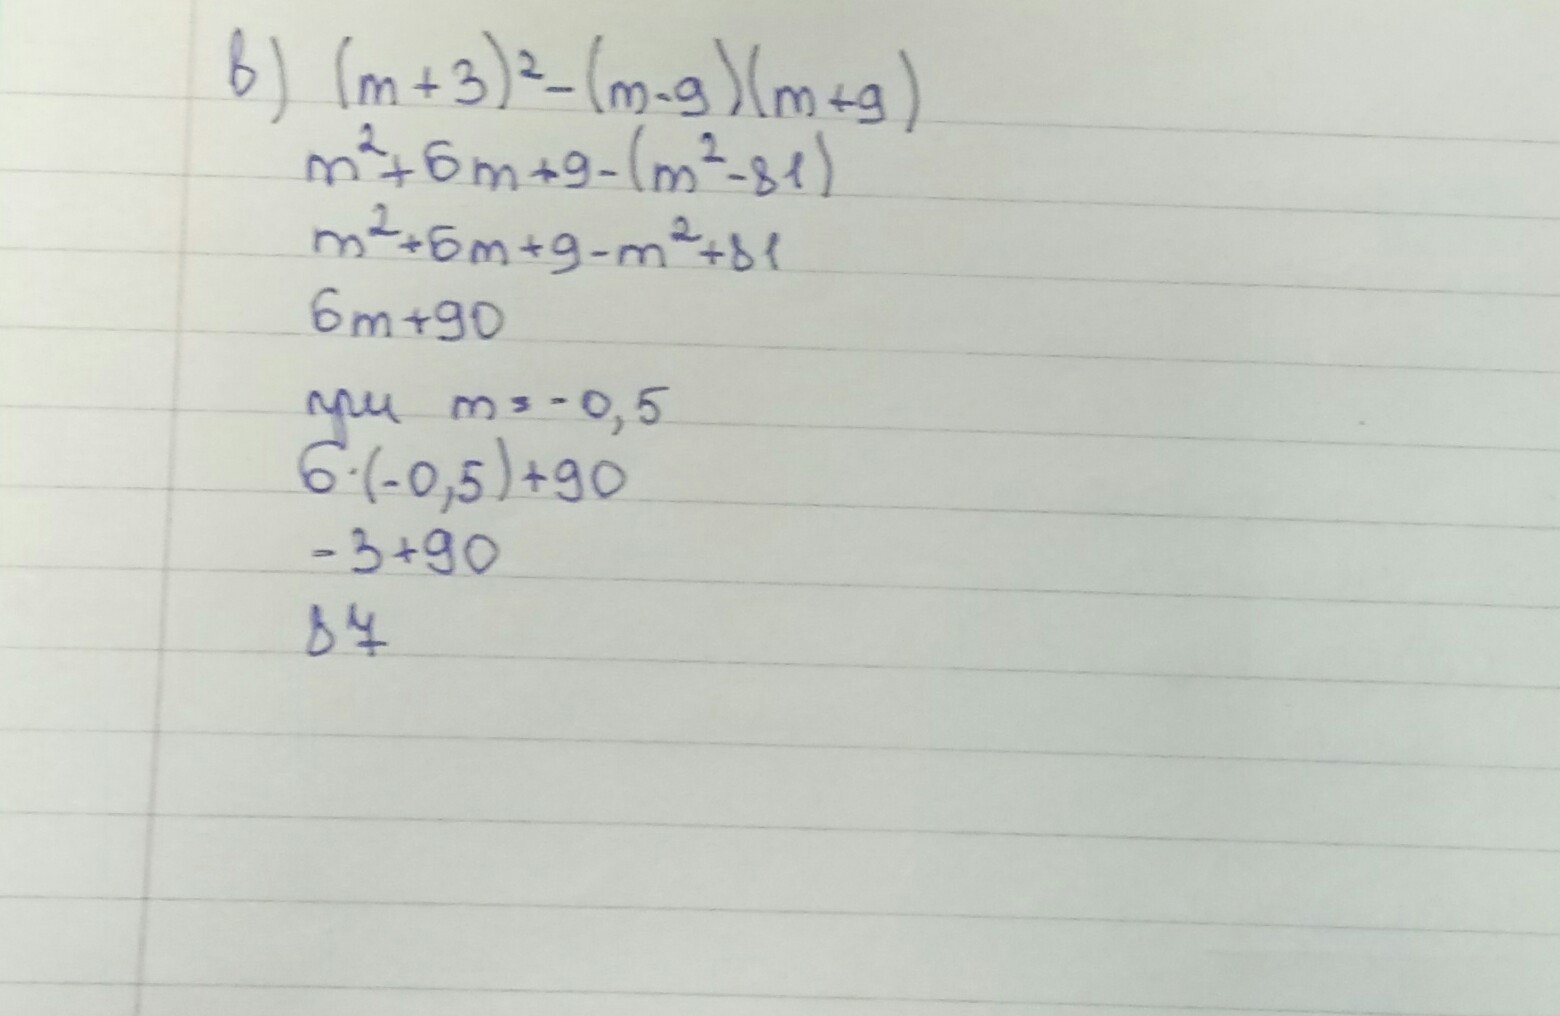 в) (m+3)²-(m-9)(m+9)
m²+6m+9-(m²-81)
m²+6m+9-m²+81
6m+90
при m=-0,5
6·(-0,5)+90
-3+90
87